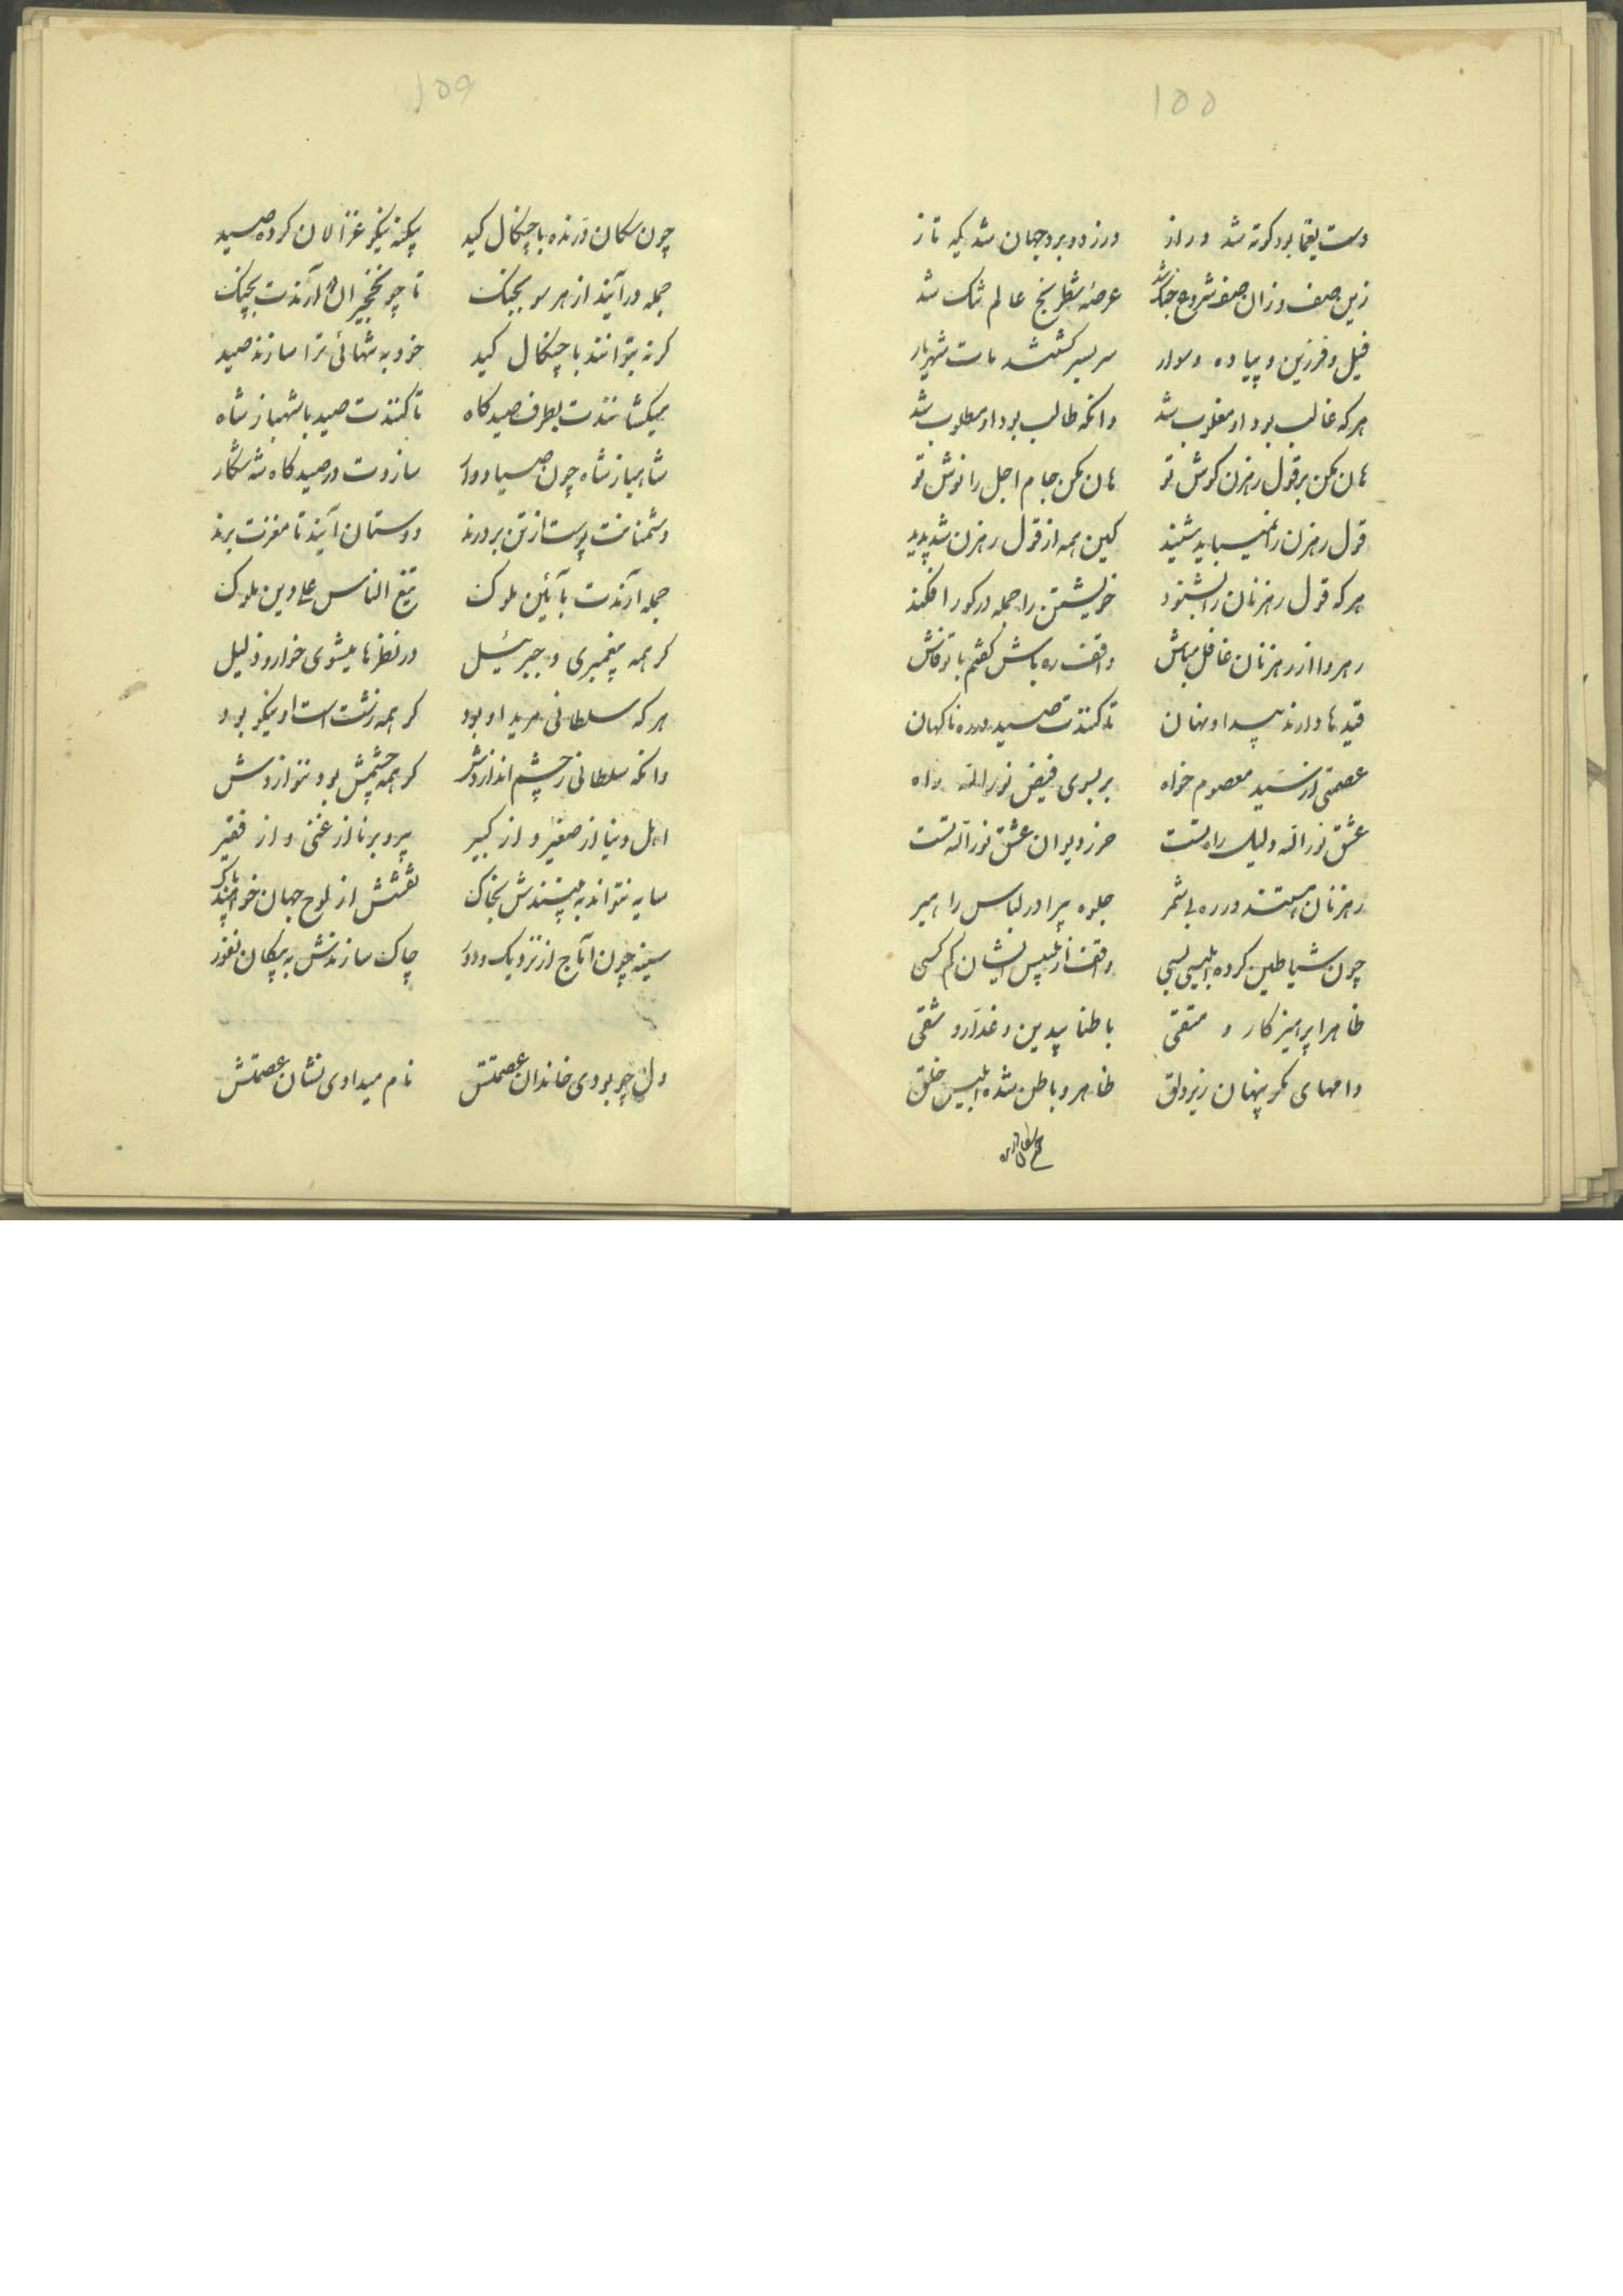 ۱۵۵
دست یغما بود کوته شد دراز درزدو برد جهان شد یکه تاز
زین صف وزان صف شروع جنک شد عرصهٔ شطرنج عالم تنک شد
فیل و فرزین و پیاده و سوار سر بسر کشتند مات شهریار
هر که غالب بود او مغلوب شد وانکه طالب بود او مطلوب شد
هان مکن بر قول رهزن کوش تو هان مکن جام اجل را نوش تو
قول رهزن را نمیباید شنید کین همه از قول رهزن شد پدید
هر که قول رهزنان را بشنود خویشتن را جمله در کور افکند
رهروا از رهزنان غافل مباش واقف ره باش کفتم با تو فاش
قیدها دارند پیدا و نهان تا کنندت صید در ره ناکهان
عصمتی از سید معصوم خواه بر بسوی فیض نور الله راه
عشق نور الله دلیل راه تست حرز دیوان عشق نور الله تست
رهزنان هستند در ره بی شمر جلوه پیرا در لباس راهبر
چون شیاطین کرده تلبیسی بسی واقف از تلبیس ایشان کم کسی
ظاهرا پرهیز کار و متقی باطنا بیدین و غدار و شقی
دامهای مکر پنهان زیر دلق ظاهر و باطن شده ابلیس خلق
۱۵۶
چون سکان درنده با چنکال کید یکه نیکو غزالان کرده صید
جمله در آیند از هر سو بجنک تا چو نخجیران آرندت بچنک
کر نه بتوانند با چنکال کید خود به تنهائی ترا سازند صید
میکشانندت بطرف صیدکاه تا کنندت صید با شهباز شاه
شاهباز شاه چون صیاد وار سازدت در صیدکاه شه شکار
دشمنانت پوست از تن بردرند دوستان آیند تا مغزت برند
جمله آرندت بآئین ملوک تبع الناس علی دین ملوک
کر همه پیغمبری و جبرئیل در نظرها میشوی خوار و ذلیل
هر که سلطانی مرید او بود کر همه زشت است او نیکو بود
وانکه سلطانی ز چشم اندازدش کر همه چشمش بود ننوازدش
اهل دنیا از صغیر و از کبیر پیر و برنا از غنی و از فقیر
سایه نتواند به پسندش بخاک نقشش از لوح جهان خواهند پاک
سینه چون آماج از نزدیک و دور چاک سازندش به پیکان نفور
دل چو بودی خاندان عصمتش نام میدادی نشان عصمتش